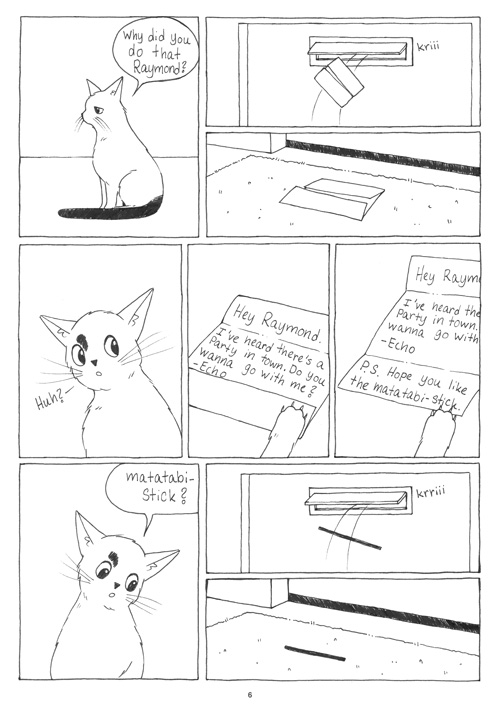 Why did you
do that
Raymond?
kriii
Huh?
Hey Raymond.
I've heard there's a
Party in town. Do you
wanna go with me?
-Echo
Hey Raym
I've heard the
Party in town.
wanna go with
-Echo
P.S. Hope you like
the matatabi-stick.
matatabi-
Stick?
krriii
6